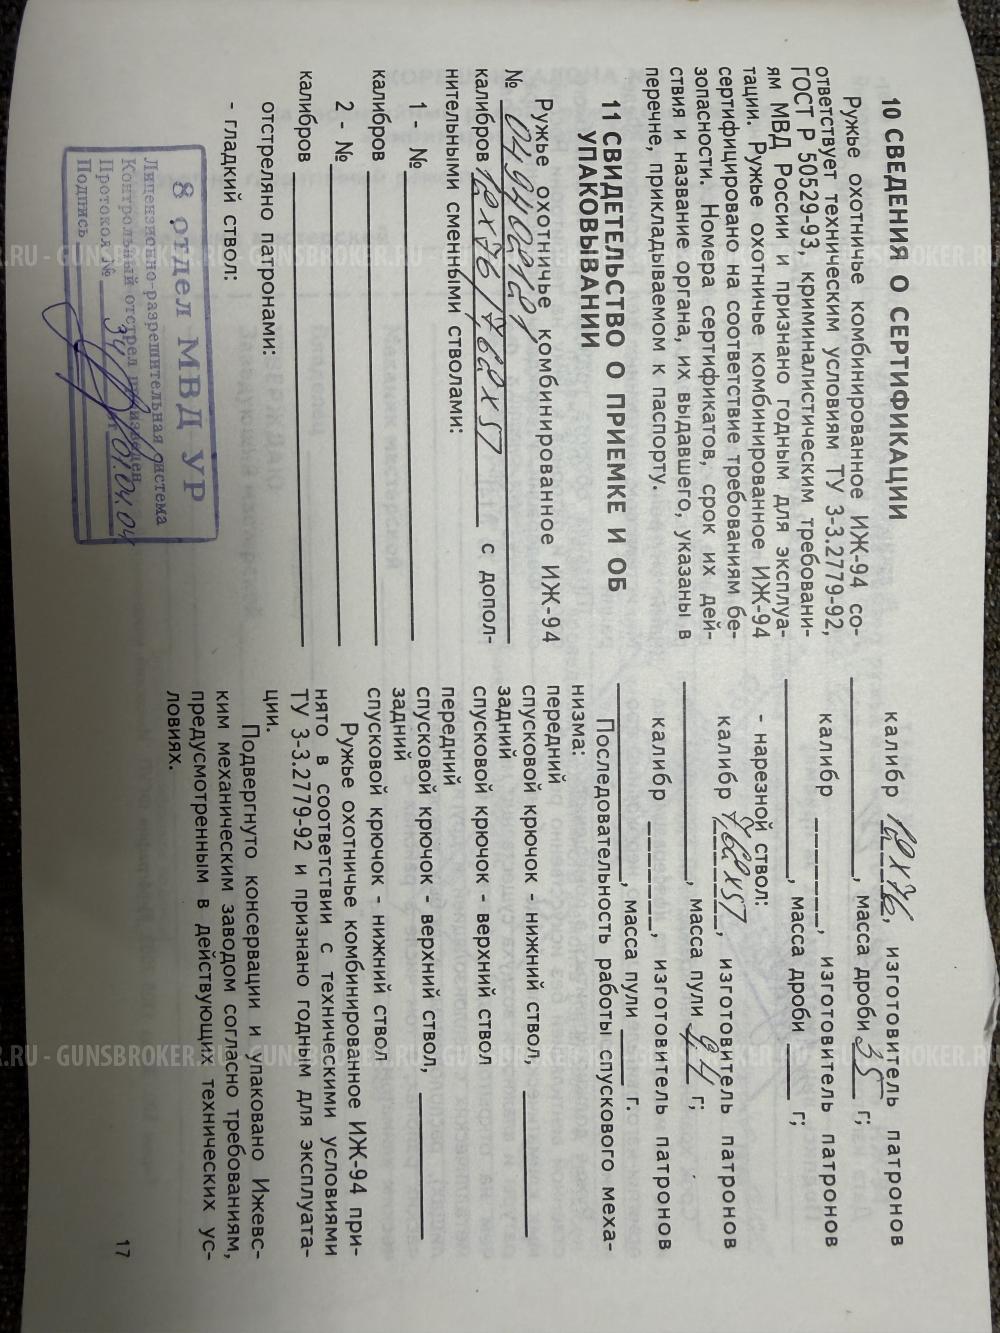 10 СВЕДЕНИЯ О СЕРТИФИКАЦИИ
Ружье охотничье комбинированное ИЖ-94 со-
ответствует техническим условиям ТУ 3-3.2779-92,
ГОСТ Р 50529-93, криминалистическим требовани-
ям МВД России и признано годным для эксплуа-
тации. Ружье охотничье комбинированное ИЖ-94
сертифицировано на соответствие требованиям бе-
зопасности. Номера сертификатов, срок их дей-
ствия и название органа, их выдавшего, указаны в
перечне, прикладываемом к паспорту.
11 СВИДЕТЕЛЬСТВО О ПРИЕМКЕ И ОБ
УПАКОВЫВАНИИ
Ружье охотничье комбинированное ИЖ-94
№ 049409181
калибров 12х76/7,62х57 с допол-
нительными сменными стволами:
1 - №
калибров
2 - №
калибров
отстреляно патронами:
- гладкий ствол:
8 отдел МВД УР
Лицензионно-разрешительная система
Контрольный отстрел произведен
Протокол № 34 от 01.04.04
Подпись
калибр 12х76, изготовитель патронов
, масса дроби 35 г;
калибр , изготовитель патронов
, масса дроби г;
- нарезной ствол:
калибр 7,62х57, изготовитель патронов
, масса пули г;
калибр , изготовитель патронов
, масса пули г.
Последовательность работы спускового меха-
низма:
передний
спусковой крючок - нижний ствол,
задний
спусковой крючок - верхний ствол
передний
спусковой крючок - верхний ствол,
задний
спусковой крючок - нижний ствол
Ружье охотничье комбинированное ИЖ-94 при-
нято в соответствии с техническими условиями
ТУ 3-3.2779-92 и признано годным для эксплуата-
ции.
Подвергнуто консервации и упаковано Ижевс-
ким механическим заводом согласно требованиям,
предусмотренным в действующих технических ус-
ловиях.
17
RU - GUNSBROKER.RU - GUNSBROKER.RU - GUNSBROKER.RU
RU - GUNSBROKER.RU - GUNSBROKER.RU - GUNSBROKER.RU